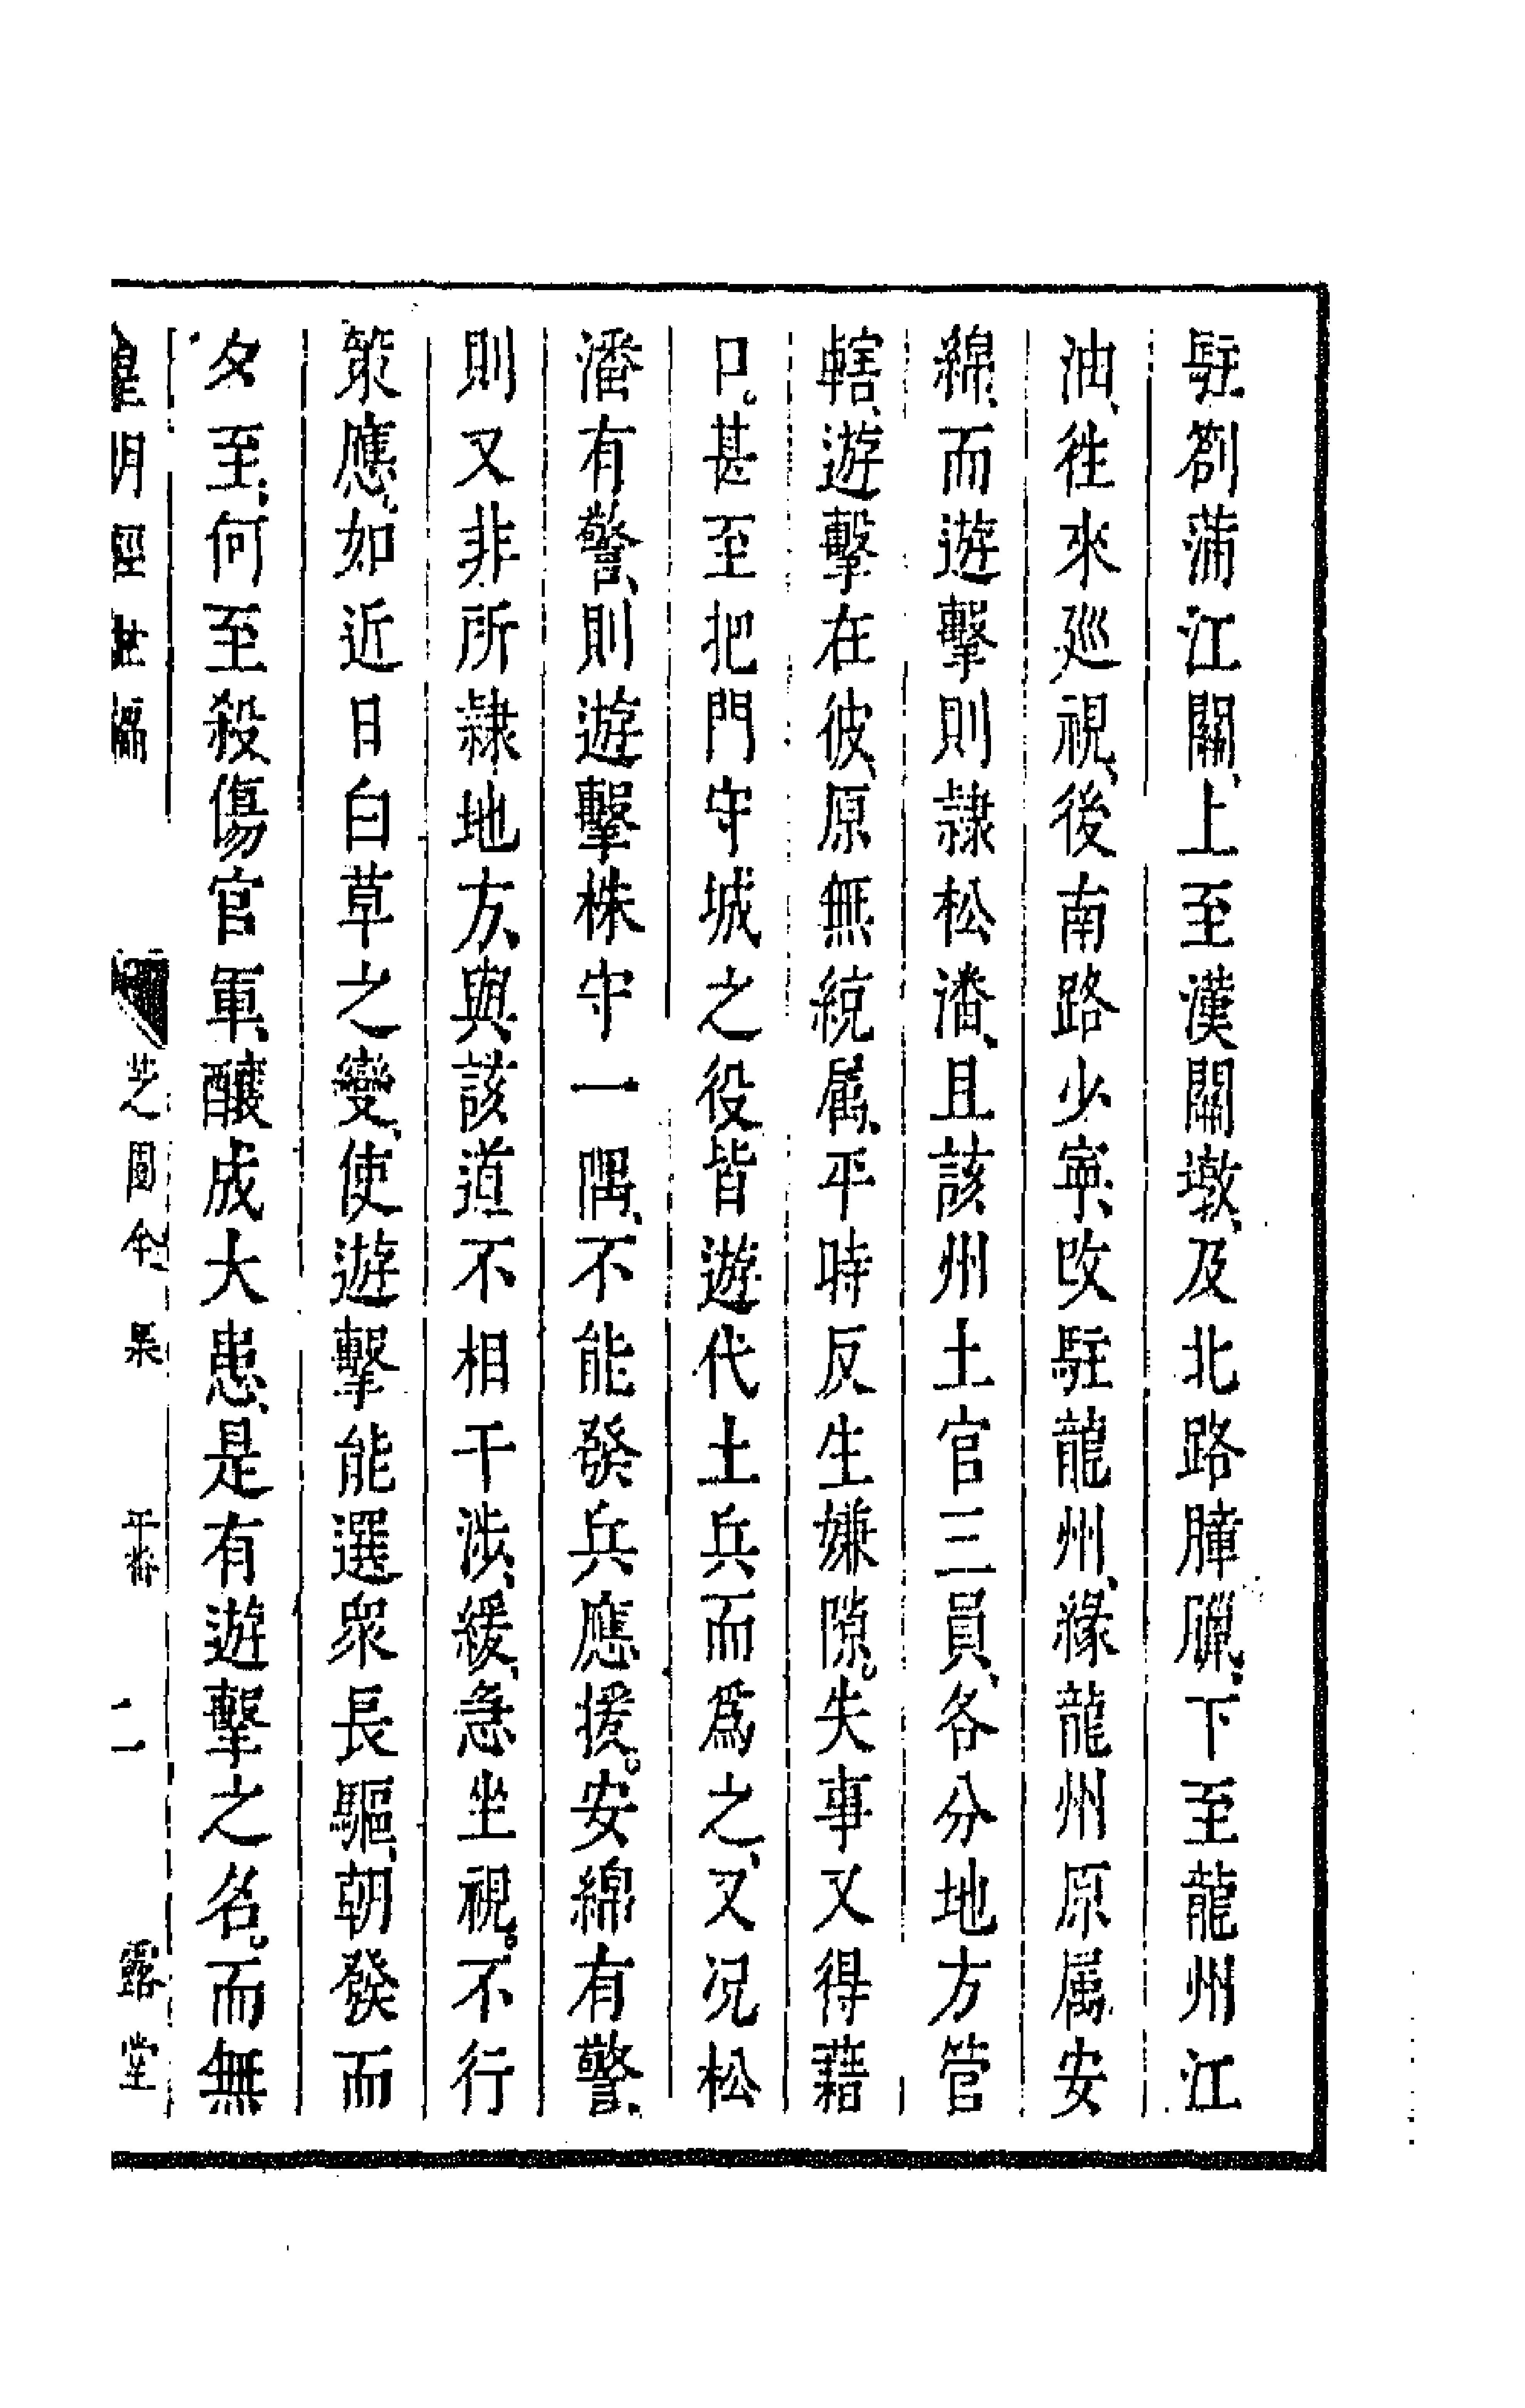 駐劄蒲江關、上至漢關墩、及北路臕㺁、下至龍州江
油、徃來廵視、後南路少寧、改駐龍州、緣龍州原属安
綿、而遊擊則隷松潘、且該州土官三員、各分地方管
轄、遊擊在彼、原無統属、平時反生嫌隙。失事又得藉
口。甚至把門守城之役皆遊代土兵而爲之、又况松
潘有警、則遊擊株守一隅、不能發兵應援。安綿有警、
則又非所隷地方、與該道不相干涉、緩急坐視。不行
策應、如近日白草之變、使遊擊能選衆長驅、朝發而
夕至、何至殺傷官軍、釀成大患、是有遊擊之名。而無
皇明經世編 平 二 露堂